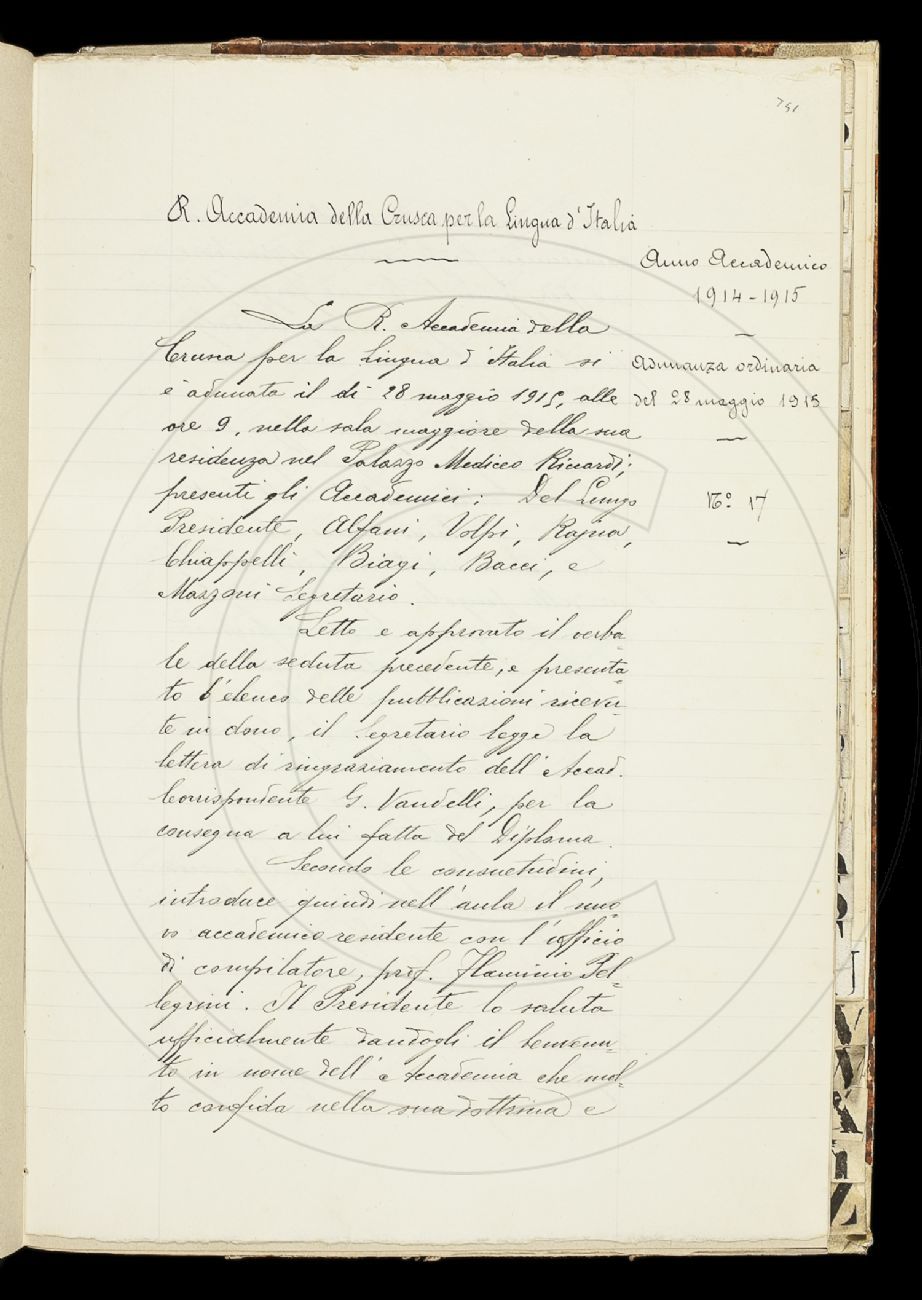 791
R. Accademia della Crusca per la Lingua d'Italia
Anno Accademico
1914-1915
Adunanza ordinaria
del 28 maggio 1915
N.° 17
La R. Accademia della
Crusca per la Lingua d'Italia si
è adunata il dì 28 maggio 1915, alle
ore 9, nella sala maggiore della sua
residenza nel Palazzo Mediceo Riccardi;
presenti gli Accademici: Del Lungo
Presidente, Alfani, Volpi, Rajna,
Chiappelli, Biagi, Bacci, e
Mazzoni Segretario.
Letto e approvato il verba-
le della seduta precedente, e presenta-
to l'elenco delle pubblicazioni ricevu-
te in dono, il Segretario legge la
lettera di ringraziamento dell'Accad.
Corrispondente G. Vandelli, per la
consegna a lui fatta del Diploma.
Secondo le consuetudini,
introduce quindi nell'aula il nuo-
vo accademico residente con l'ufficio
di compilatore, prof. Flaminio Pel-
legrini. Il Presidente lo saluta
ufficialmente dandogli il benvenu-
to in nome dell'Accademia che mol-
to confida nella sua dottrina e